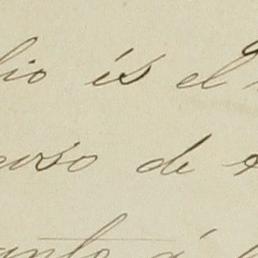 lio is el
curso de
anto á